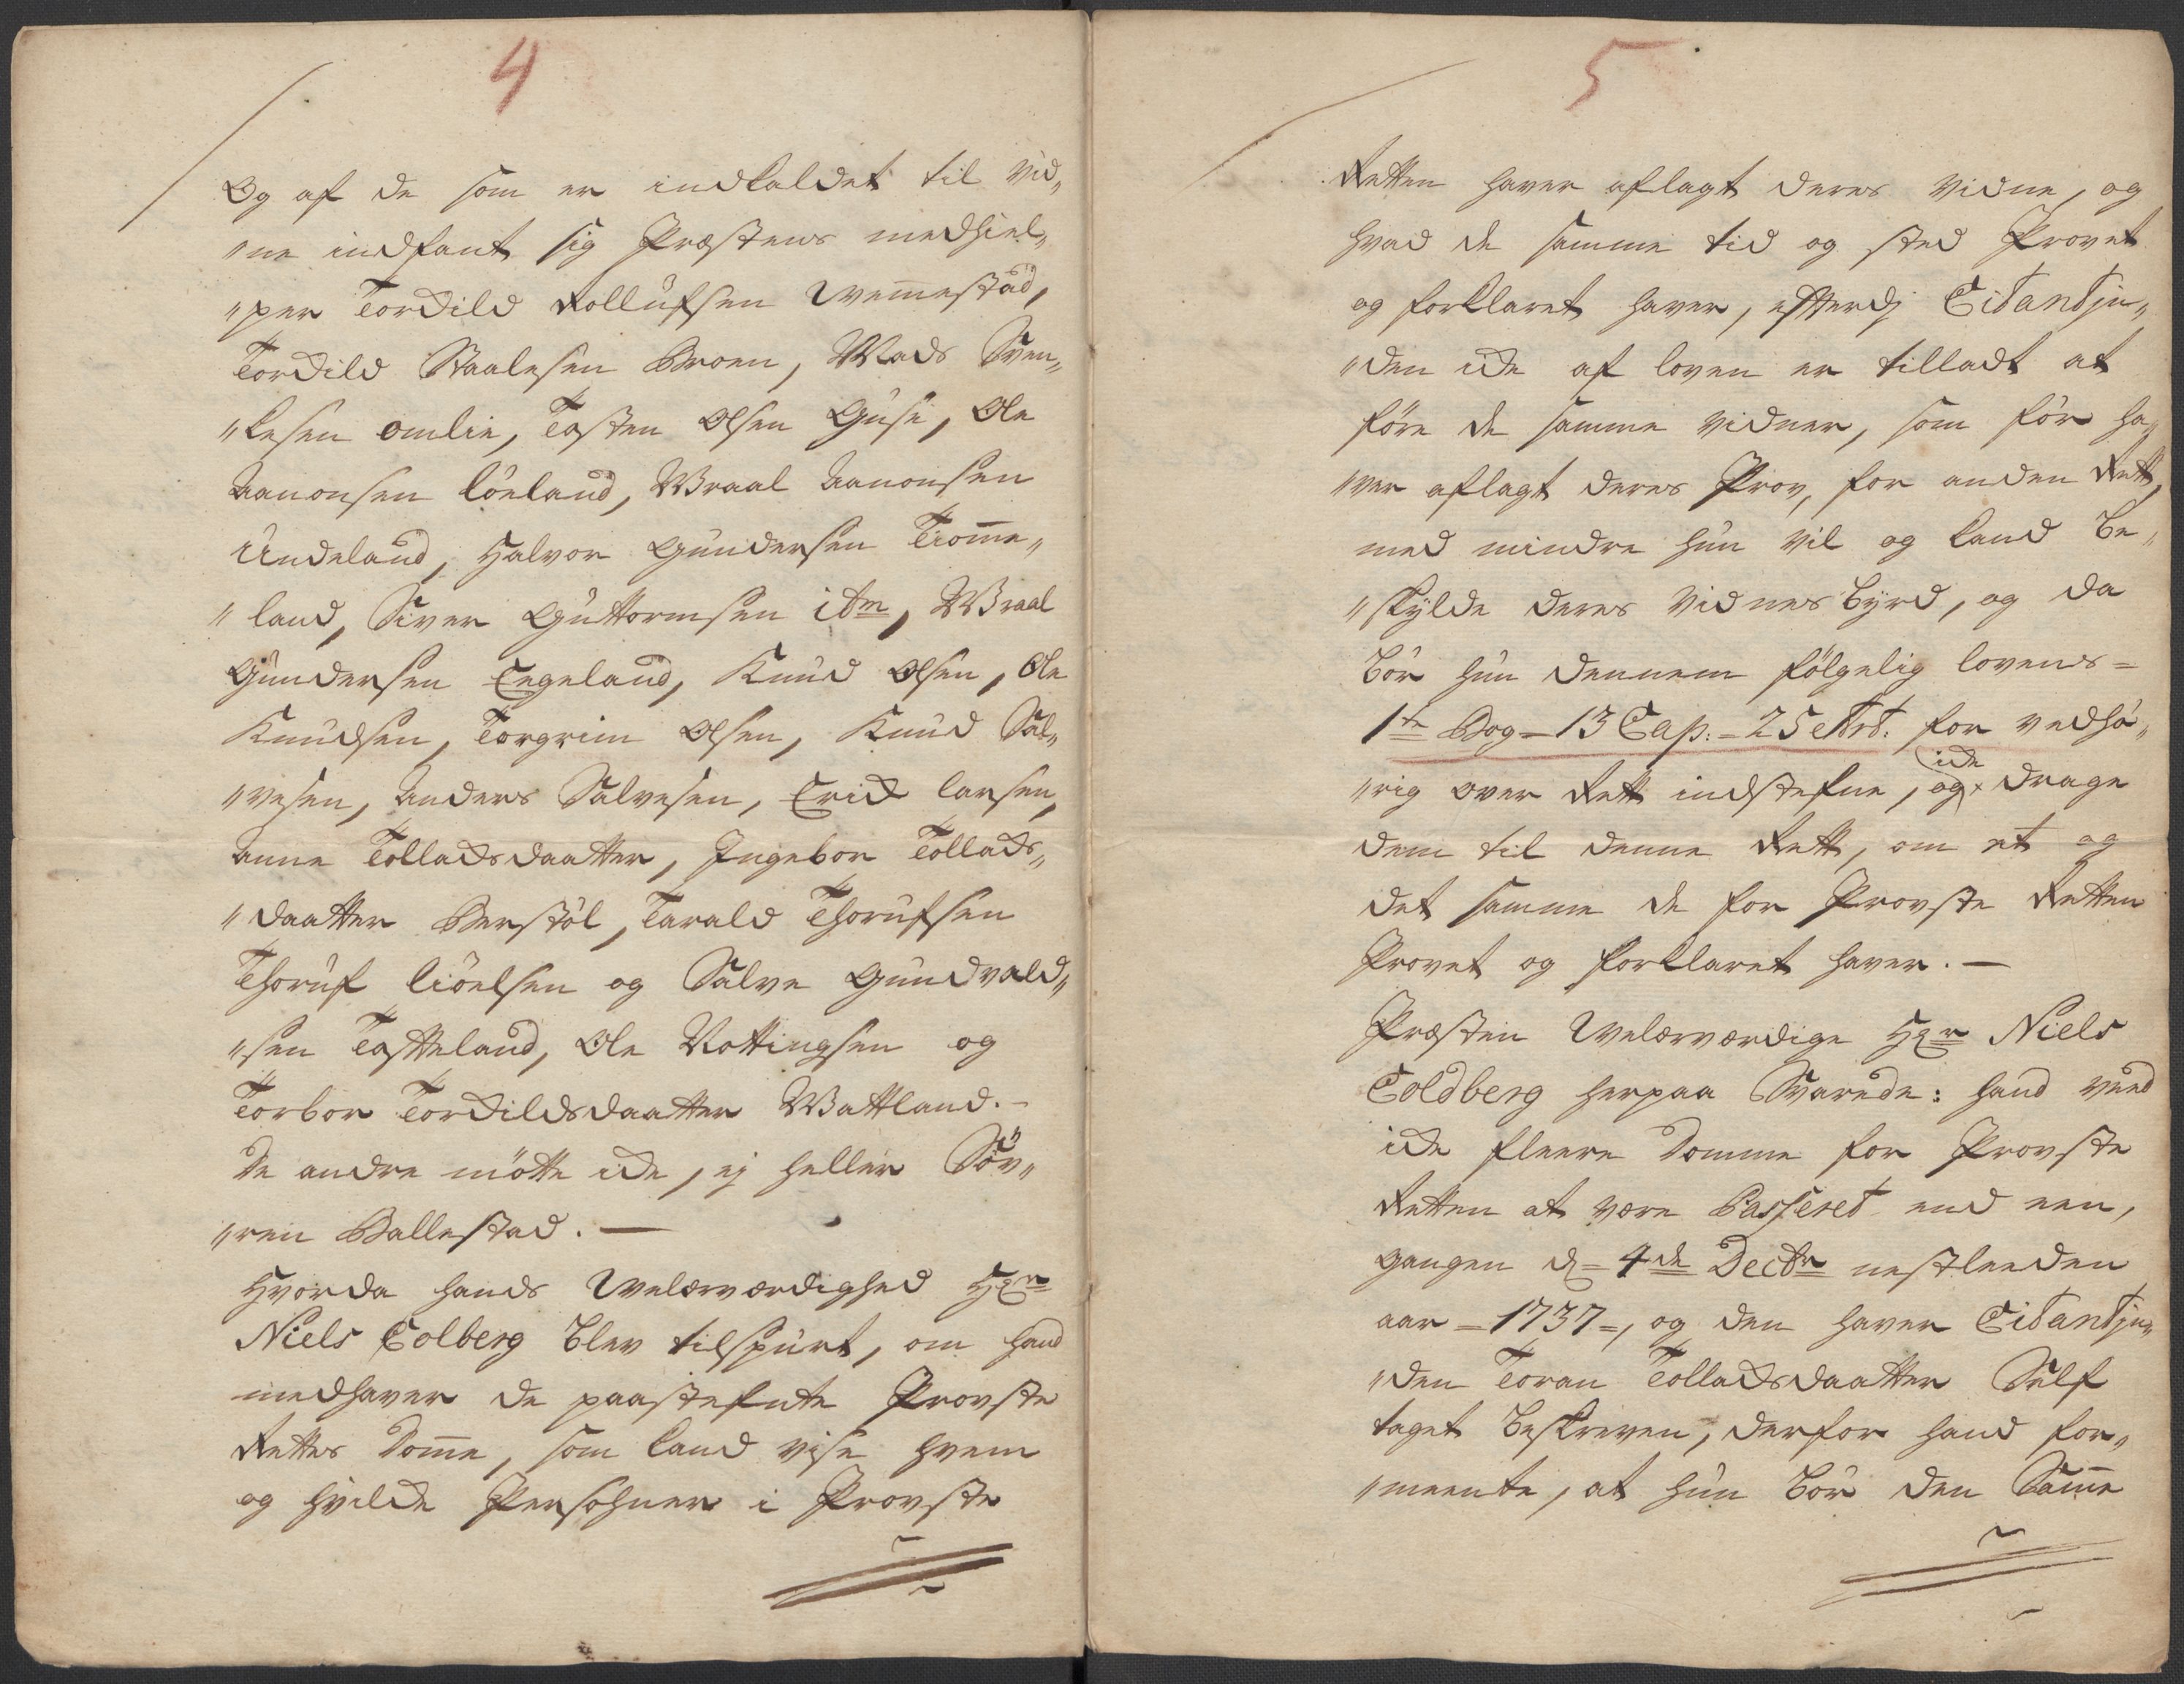 4
Og af de som er indkaldet til vid„
„ne indfant sig Præstens medhiel„
„per Torkild Rollufsen Wemestad,
Torkild Staalesen Broen, Mads Sven„
„kesen omlie, Tosten Olsen Guse, Ole
Aanonsen löeland, Wraal Aanonsen
Undeland, Halvor Gundersen Tiome„
„land, Siver Guttormsen itm, Wraal
Gundersen Egeland, Knud Olsen, Ole
Knudsen, Torgrim Olsen, Knud Sal„
„vesen, Anders Salvesen, Erik larsen,
Anne Tollaksdaatter, Ingebor Tollaks„
„daatter Berstöl, Tarald Thorufsen
Thoruf liöelsen og Salve Gundvald„
„sen Tasteland, Ole Nottingsen og
Torbor Torkildsdaatter Wattland. -
De andre mötte icke, ej heller Söv„
„ren Ballestad. —
Hvorda hands Welærværdighed Hr
Niels Colberg blev tilspurt, om hand
medhaver de paastefnte Provste
Rettes Dome, som kand vise hvem
og hvilcke Persohner i Provste
5
Retten haver aflagt deres vidne, og
hvad de samme tid og sted Provet
og forklaret haver, efterdj Citantjn„
„den icke af loven er tilladt at
före de samme vidner, som för ha„
„ver aflagt deres Prov, for anden Rett,
med mindre hun vil og kand be„
„skylde deres vidnes byrd, og da
bör hun dennem fölgelig lovens =
1te Bog = 13 Cap: = 25 Art: for vedhö„
icke
„rig over Rett indstefne, og drage
dem til denne Rett, om et og
det samme de for Provste Retten
Provet og forklaret haver. —
Præsten Welærværdige Hr Niels
Coldberg herpaa Svarede: hand veed
icke fleere Domme for Provste
Retten at være Passeret end een,
gangen d = 4de Decbr nestleeden
aar = 1737 =, og den haver Citantjn„
„den Toran Tollaksdaatter Self
taget beskreven, derfor hand for„
„meente, at hun bör den Same